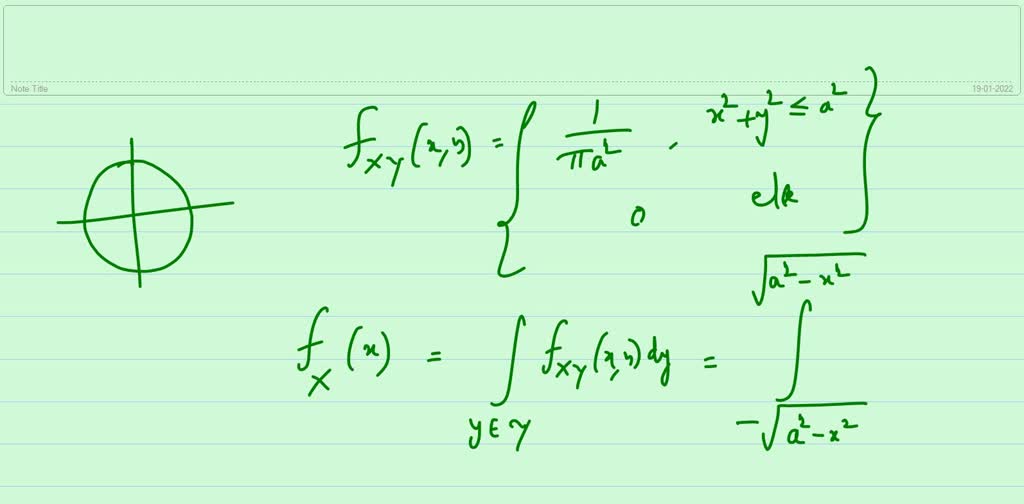 Note Title 19-01-2022
f_{XY}(x,y) = { 1/(πa²) , x² + y² ≤ a²
0 else }
f_X(x) = ∫_{y∈Y} f_{XY}(x,y) dy = ∫_{-√(a²-x²)}^{√(a²-x²)}